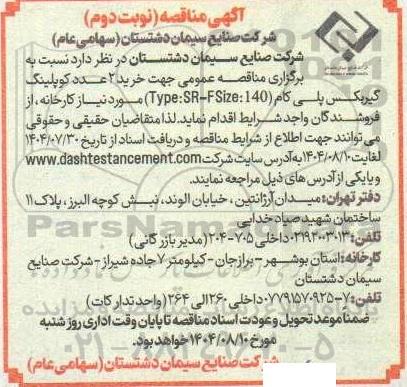 آگهی مناقصه (نوبت دوم)
شرکت صنایع سیمان دشتستان (سهامی عام)
شرکت صنایع سیمان دشتستان در نظر دارد نسبت به
برگزاری مناقصه عمومی جهت خرید ۲ عدد کوپلینگ
گیربکس پلی کام (Type:SR-FSize:140) مورد نیاز کارخانه، از
فروشندگان واجد شرایط اقدام نماید. لذا متقاضیان حقیقی و حقوقی
می توانند جهت اطلاع از شرایط مناقصه و دریافت اسناد از تاریخ ۱۴۰۴/۰۷/۳۰
لغایت ۱۴۰۴/۰۸/۱۰ به آدرس سایت شرکت www.dashtestancement.com
و یا یکی از آدرس های ذیل مراجعه نمایند.
دفتر تهران: میدان آرژانتین، خیابان الوند، نبش کوچه البرز، پلاک ۱۱
ساختمان شهید صیاد خدایی
تلفن: ۰۲۱۹۲۰۰۳۰۱۳ داخلی ۷۰۵-۲۰۴ (مدیر بازرگانی)
کارخانه: استان بوشهر - برازجان - کیلومتر ۷ جاده شیراز - شرکت صنایع
سیمان دشتستان
تلفن: ۷-۰۷۷۹۱۵۷۰۹۲۵ داخلی ۲۶۰ الی ۲۶۴ (واحد تدارکات)
ضمنا موعد تحویل و عودت اسناد مناقصه تا پایان وقت اداری روز شنبه
مورخ ۱۴۰۴/۰۸/۱۰ خواهد بود.
شرکت صنایع سیمان دشتستان (سهامی عام)